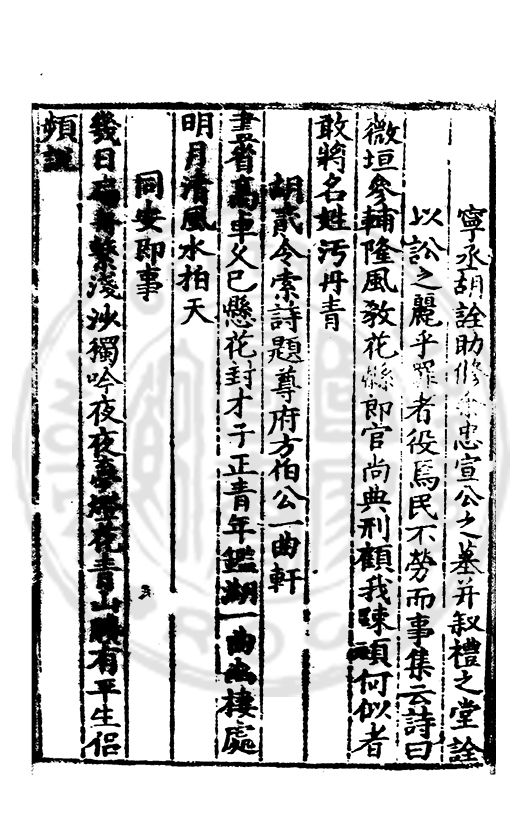 寧丞胡詮助修余忠宣公之墓并叙禮之堂詮
以訟之麗乎罪者役焉民不勞而事集云詩曰
薇垣參輔隆風教花縣郎官尚典刑顧我疎頑何似者
敢將名姓汚丹青
胡貳令索詩題尊府方伯公一曲軒
畫省高車父已懸花封才子正青年鑑湖一曲幽棲處
明月清風水拍天
同安即事
幾日舟繫淺沙獨吟夜夜夢燈花青山有平生侶
頻